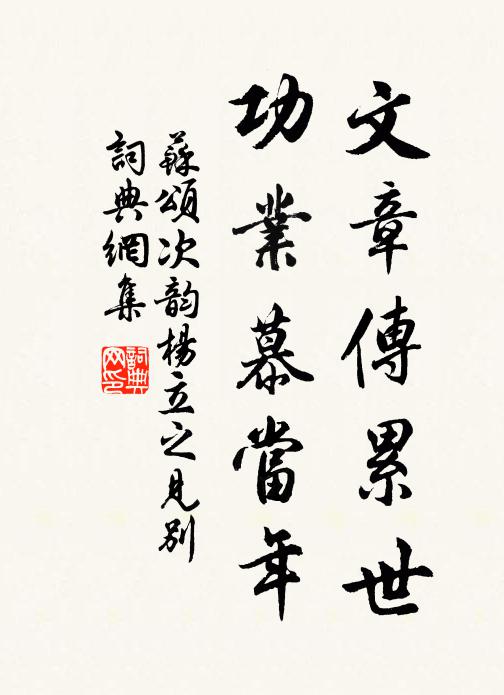 文章傳累世
功業慕當年
蘇頌次韵楊立之見別
詞典網集
詞典網印